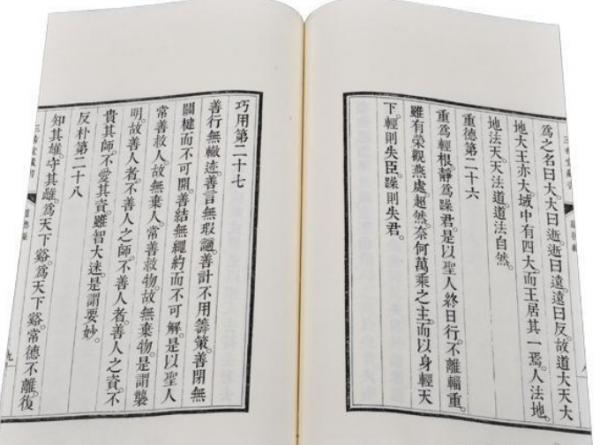 為之名曰大。大曰逝。逝曰遠。遠曰反。故道大。天大。
地大。王亦大。域中有四大。而王居其一焉。人法地。
地法天。天法道。道法自然。
重德第二十六
重為輕根。靜為躁君。是以聖人終日行。不離輜重。
雖有榮觀。燕處超然。奈何萬乘之主。而以身輕天
下。輕則失臣。躁則失君。
巧用第二十七
善行無轍迹。善言無瑕讁。善計不用籌策。善閉無
關楗而不可開。善結無繩約而不可解。是以聖人
常善救人。故無棄人。常善救物。故無棄物。是謂襲
明。故善人者。不善人之師。不善人者。善人之資。不
貴其師。不愛其資。雖智大迷。是謂要妙。
反朴第二十八
知其雄。守其雌。為天下谿。為天下谿。常德不離。復
九